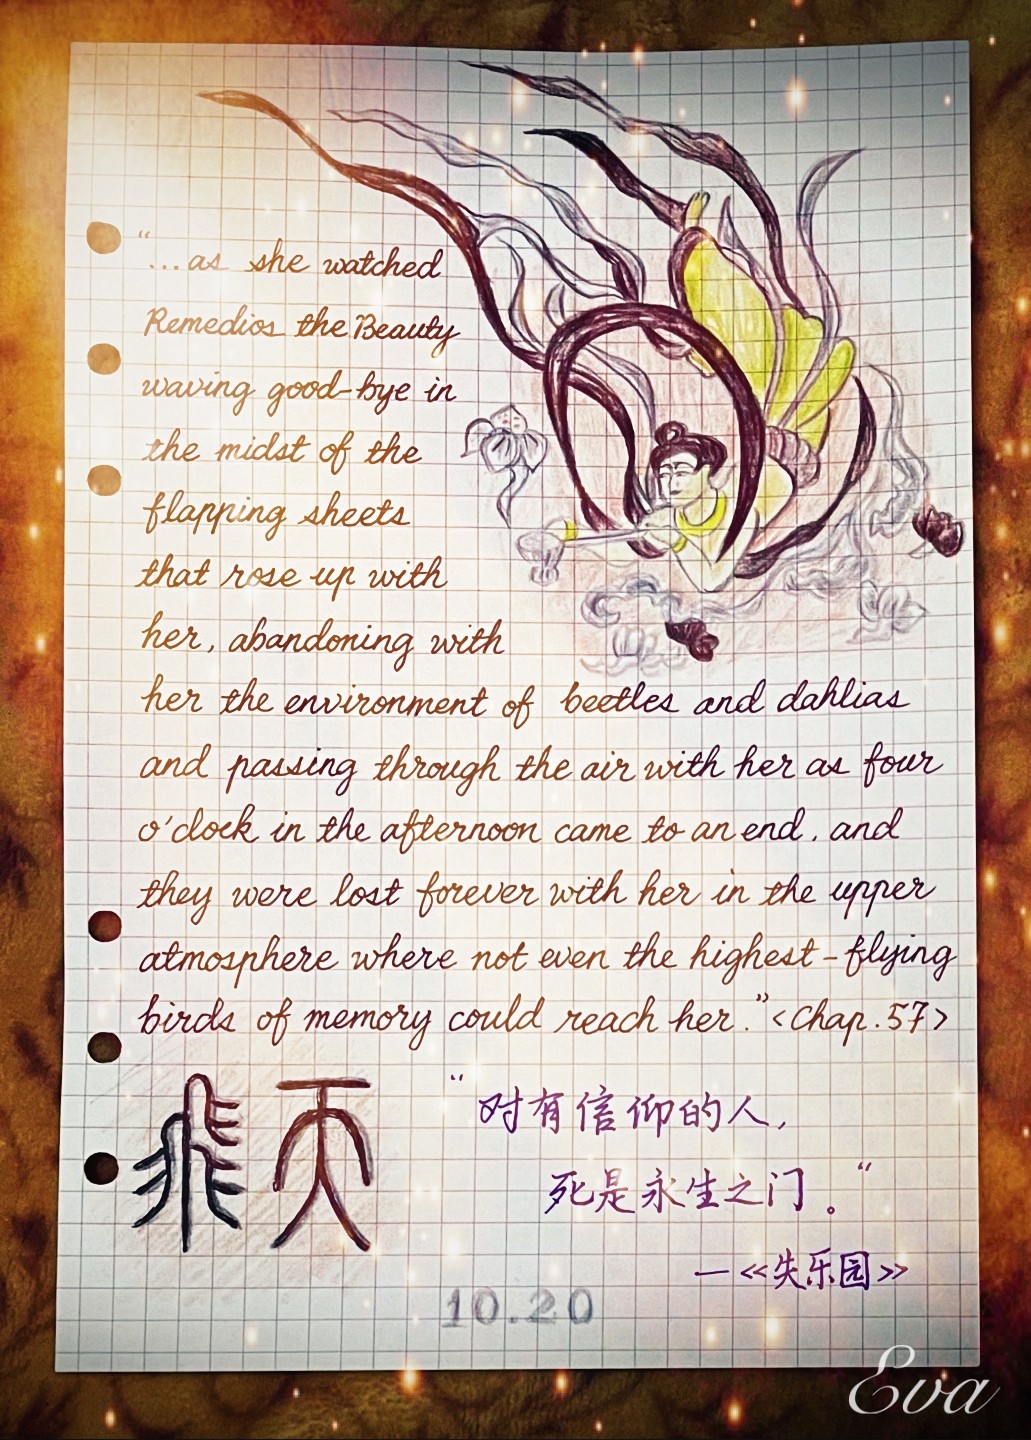 "...as she watched
Remedios the Beauty
waving good-bye in
the midst of the
flapping sheets
that rose up with
her, abandoning with
her the environment of beetles and dahlias
and passing through the air with her as four
o'clock in the afternoon came to an end, and
they were lost forever with her in the upper
atmosphere where not even the highest-flying
birds of memory could reach her."<Chap.57>
飛天
"对有信仰的人,
死是永生之门。"
—《失乐园》
10.20
Eva